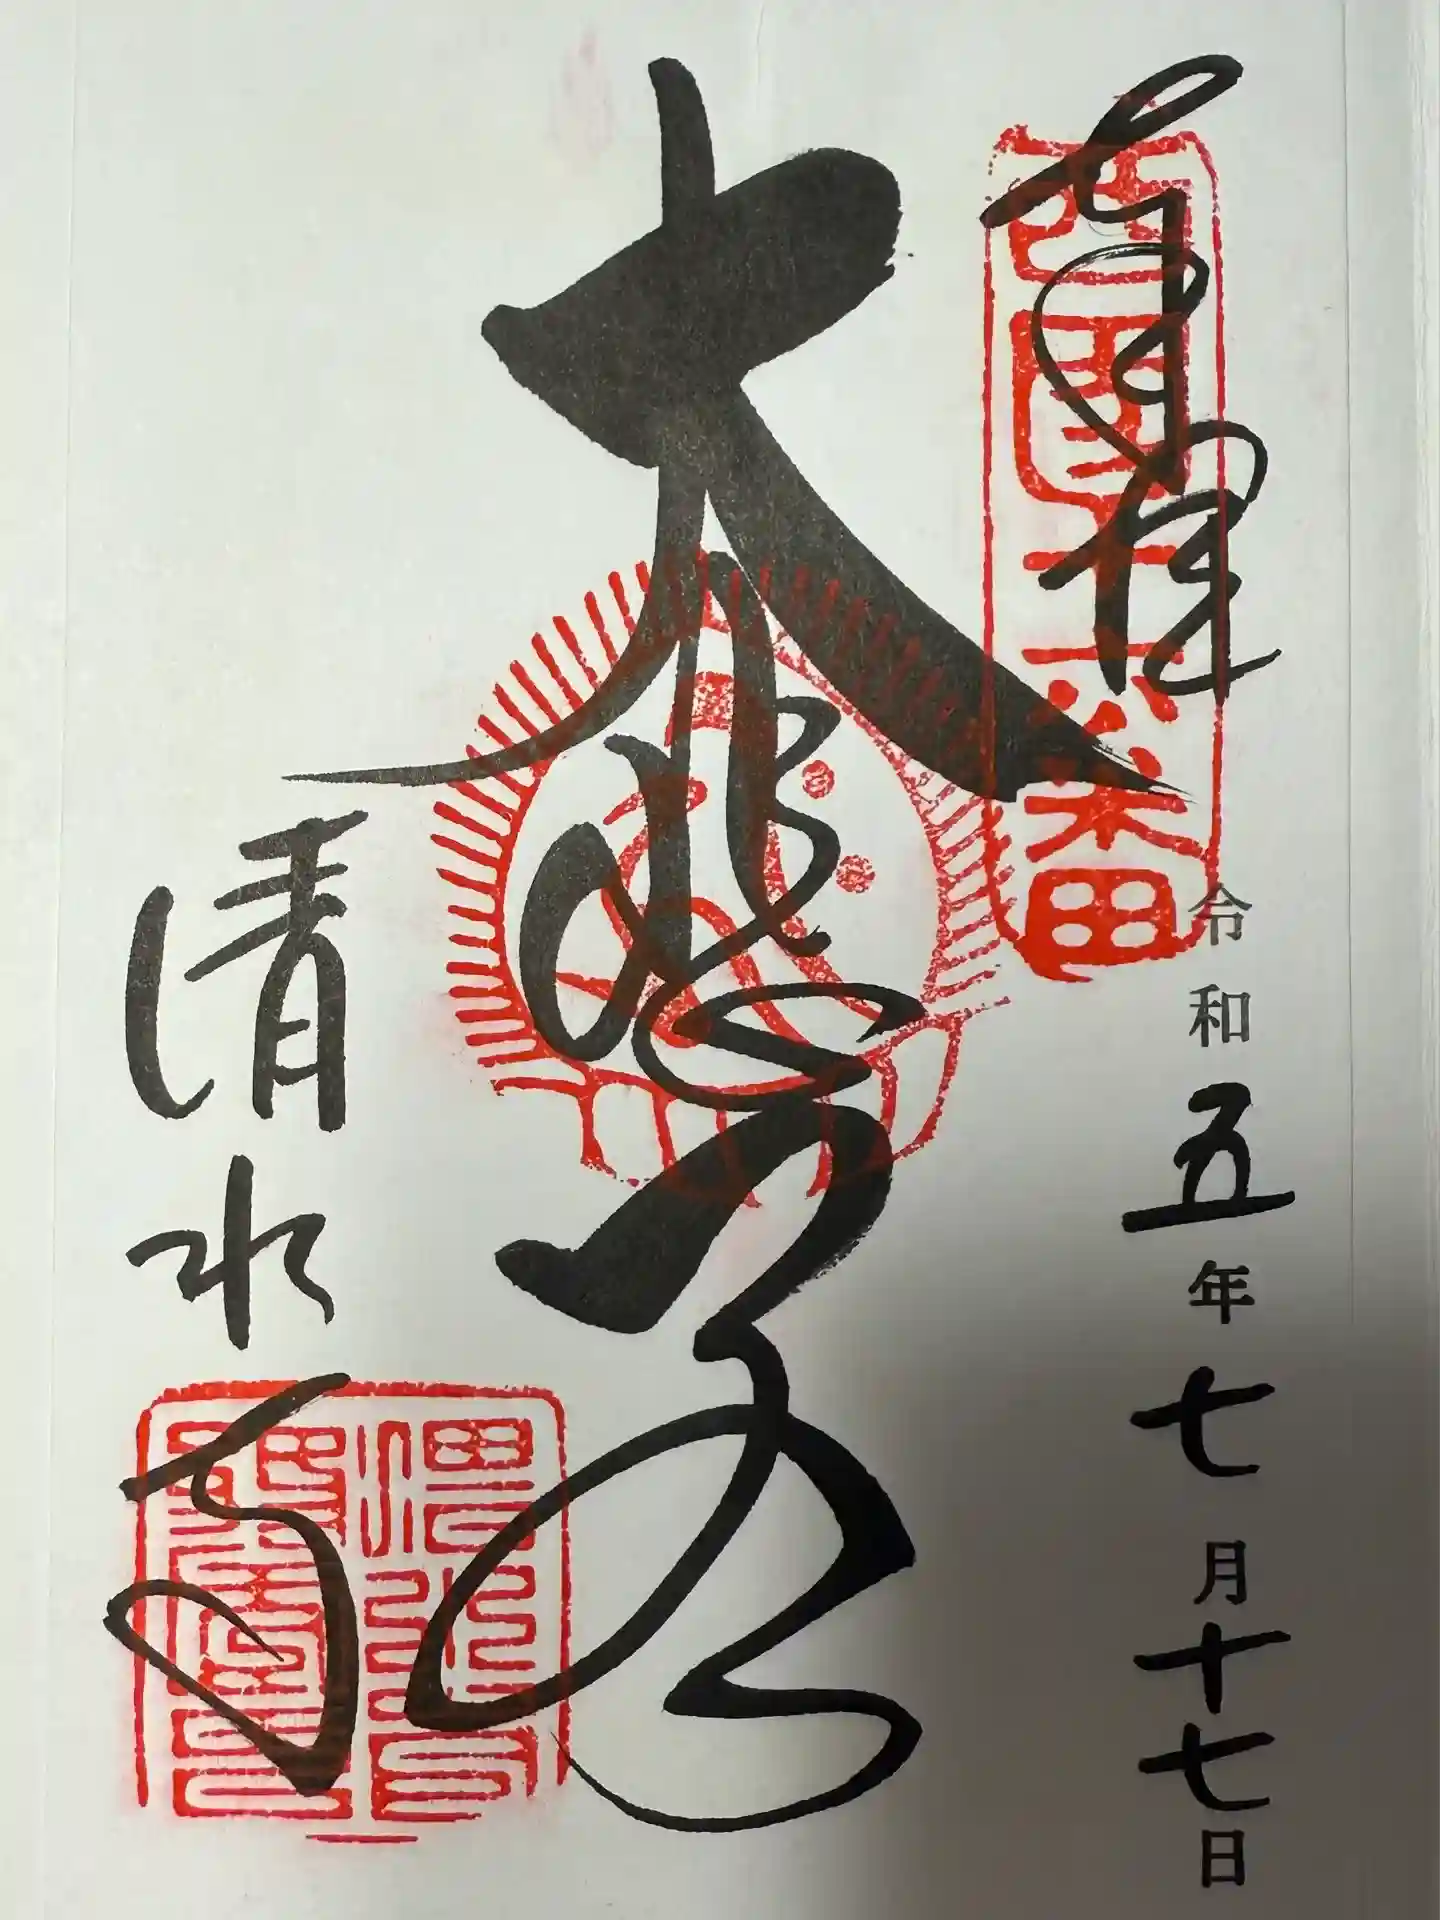 奉拝
西国十六番
令和五年七月十七日
大悲閣
清水寺